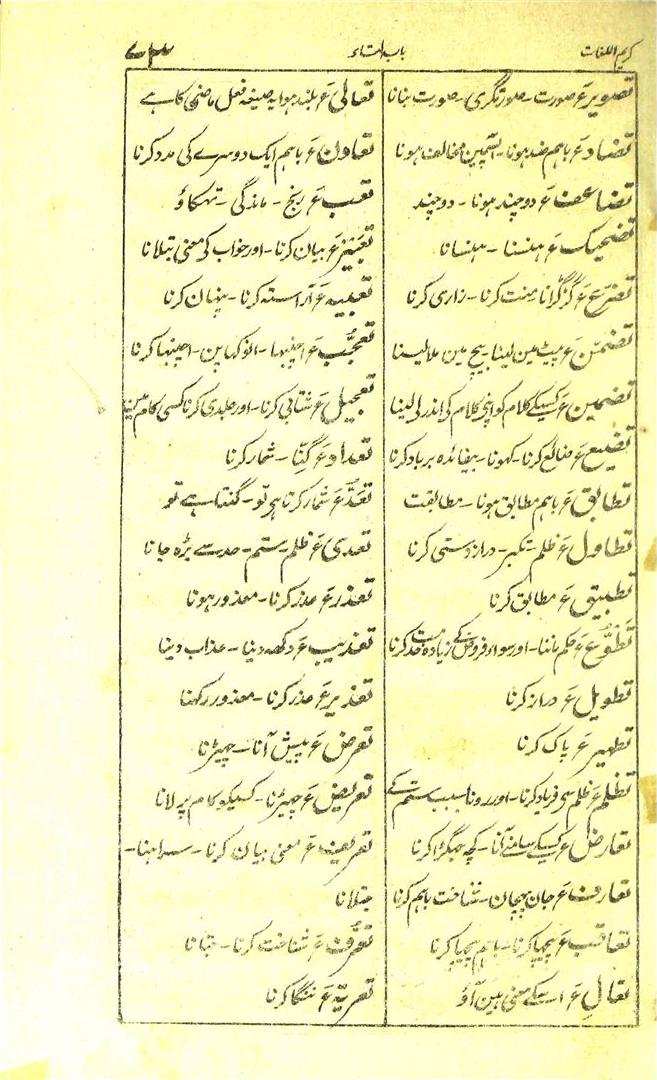 کریم اللغات
باب التاء
۷۳
تصویر ع صورت - صورتگری - صورت بنانا
تضاد ع باہم ضد ہونا - آپسمین مخالف ہونا
تضاعف ع دو چند ہونا - دوچند
تضحیک ع ہنسنا - ہنسانا
تضرع ع گڑگڑانا منت کرنا - زاری کرنا
تضمن ع پیٹ مین لینا بیچ مین ملا لینا
تضمین ع کسیکے کلام کو اپنے کلام کی اندر لی لینا
تضیع ع ضائع کرنا - کھونا - بیفائدہ برباد کرنا
تطابق ع باہم مطابق ہونا - مطابقت
تطاول ع ظلم - تکبر - دراز دستی کرنا
تطبیق ع مطابق کرنا
تطوع ع حکم ماننا - اور سواے فرضوں کے زیادہ کرنا
تطویل ع دراز کرنا
تطہیر ع پاک کرنا
تظلم ع ظلم سی فریاد کرنا - اور رونا بسبب ستم کے
تعارض ع کسیکے سامنے آنا - کچھ جھگڑا کرنا
تعارف ع جان پہچان - شناخت باہم کرنا
تعاقب ع پیچھا کرنا - باہم پیچھا کرنا
تعال ع اسکے معنی ہین آؤ
تعالی ع بلند ہوا یہ صیغہ فعل ماضی کا ہے
تعاون ع باہم ایک دوسرے کی مدد کرنا
تعب ع رنج - ماندگی - تھکاؤ
تعبیر ع بیان کرنا - اور خواب کی معنی بتلانا
تعبیہ ع آراستہ کرنا - پنہان کرنا
تعجب ع اچنبھا - انوکھا پن - اچنبھا کرنا
تعجیل ع شتابی کرنا - اور جلدی کرنا کسی کام مین
تعداد ع گنتی - شمار کرنا
تعد ع شمار کرتا ہی تو - گنتا ہے تو
تعدی ع ظلم - ستم - حد سے بڑہ جانا
تعذر ع عذر کرنا - معذور ہونا
تعذیب ع دکھہ دینا - عذاب دینا
تعذیر ع عذر کرنا - معذور رکھنا
تعرض ع پیش آنا - چھیڑنا
تعریض ع چھیڑنا - کسیکو کام پر لانا
تعریف ع معنی بیان کرنا - سراہنا -
جتلانا
تعرف ع شناخت کرنا - جتانا
تعریہ ع ننگا کرنا